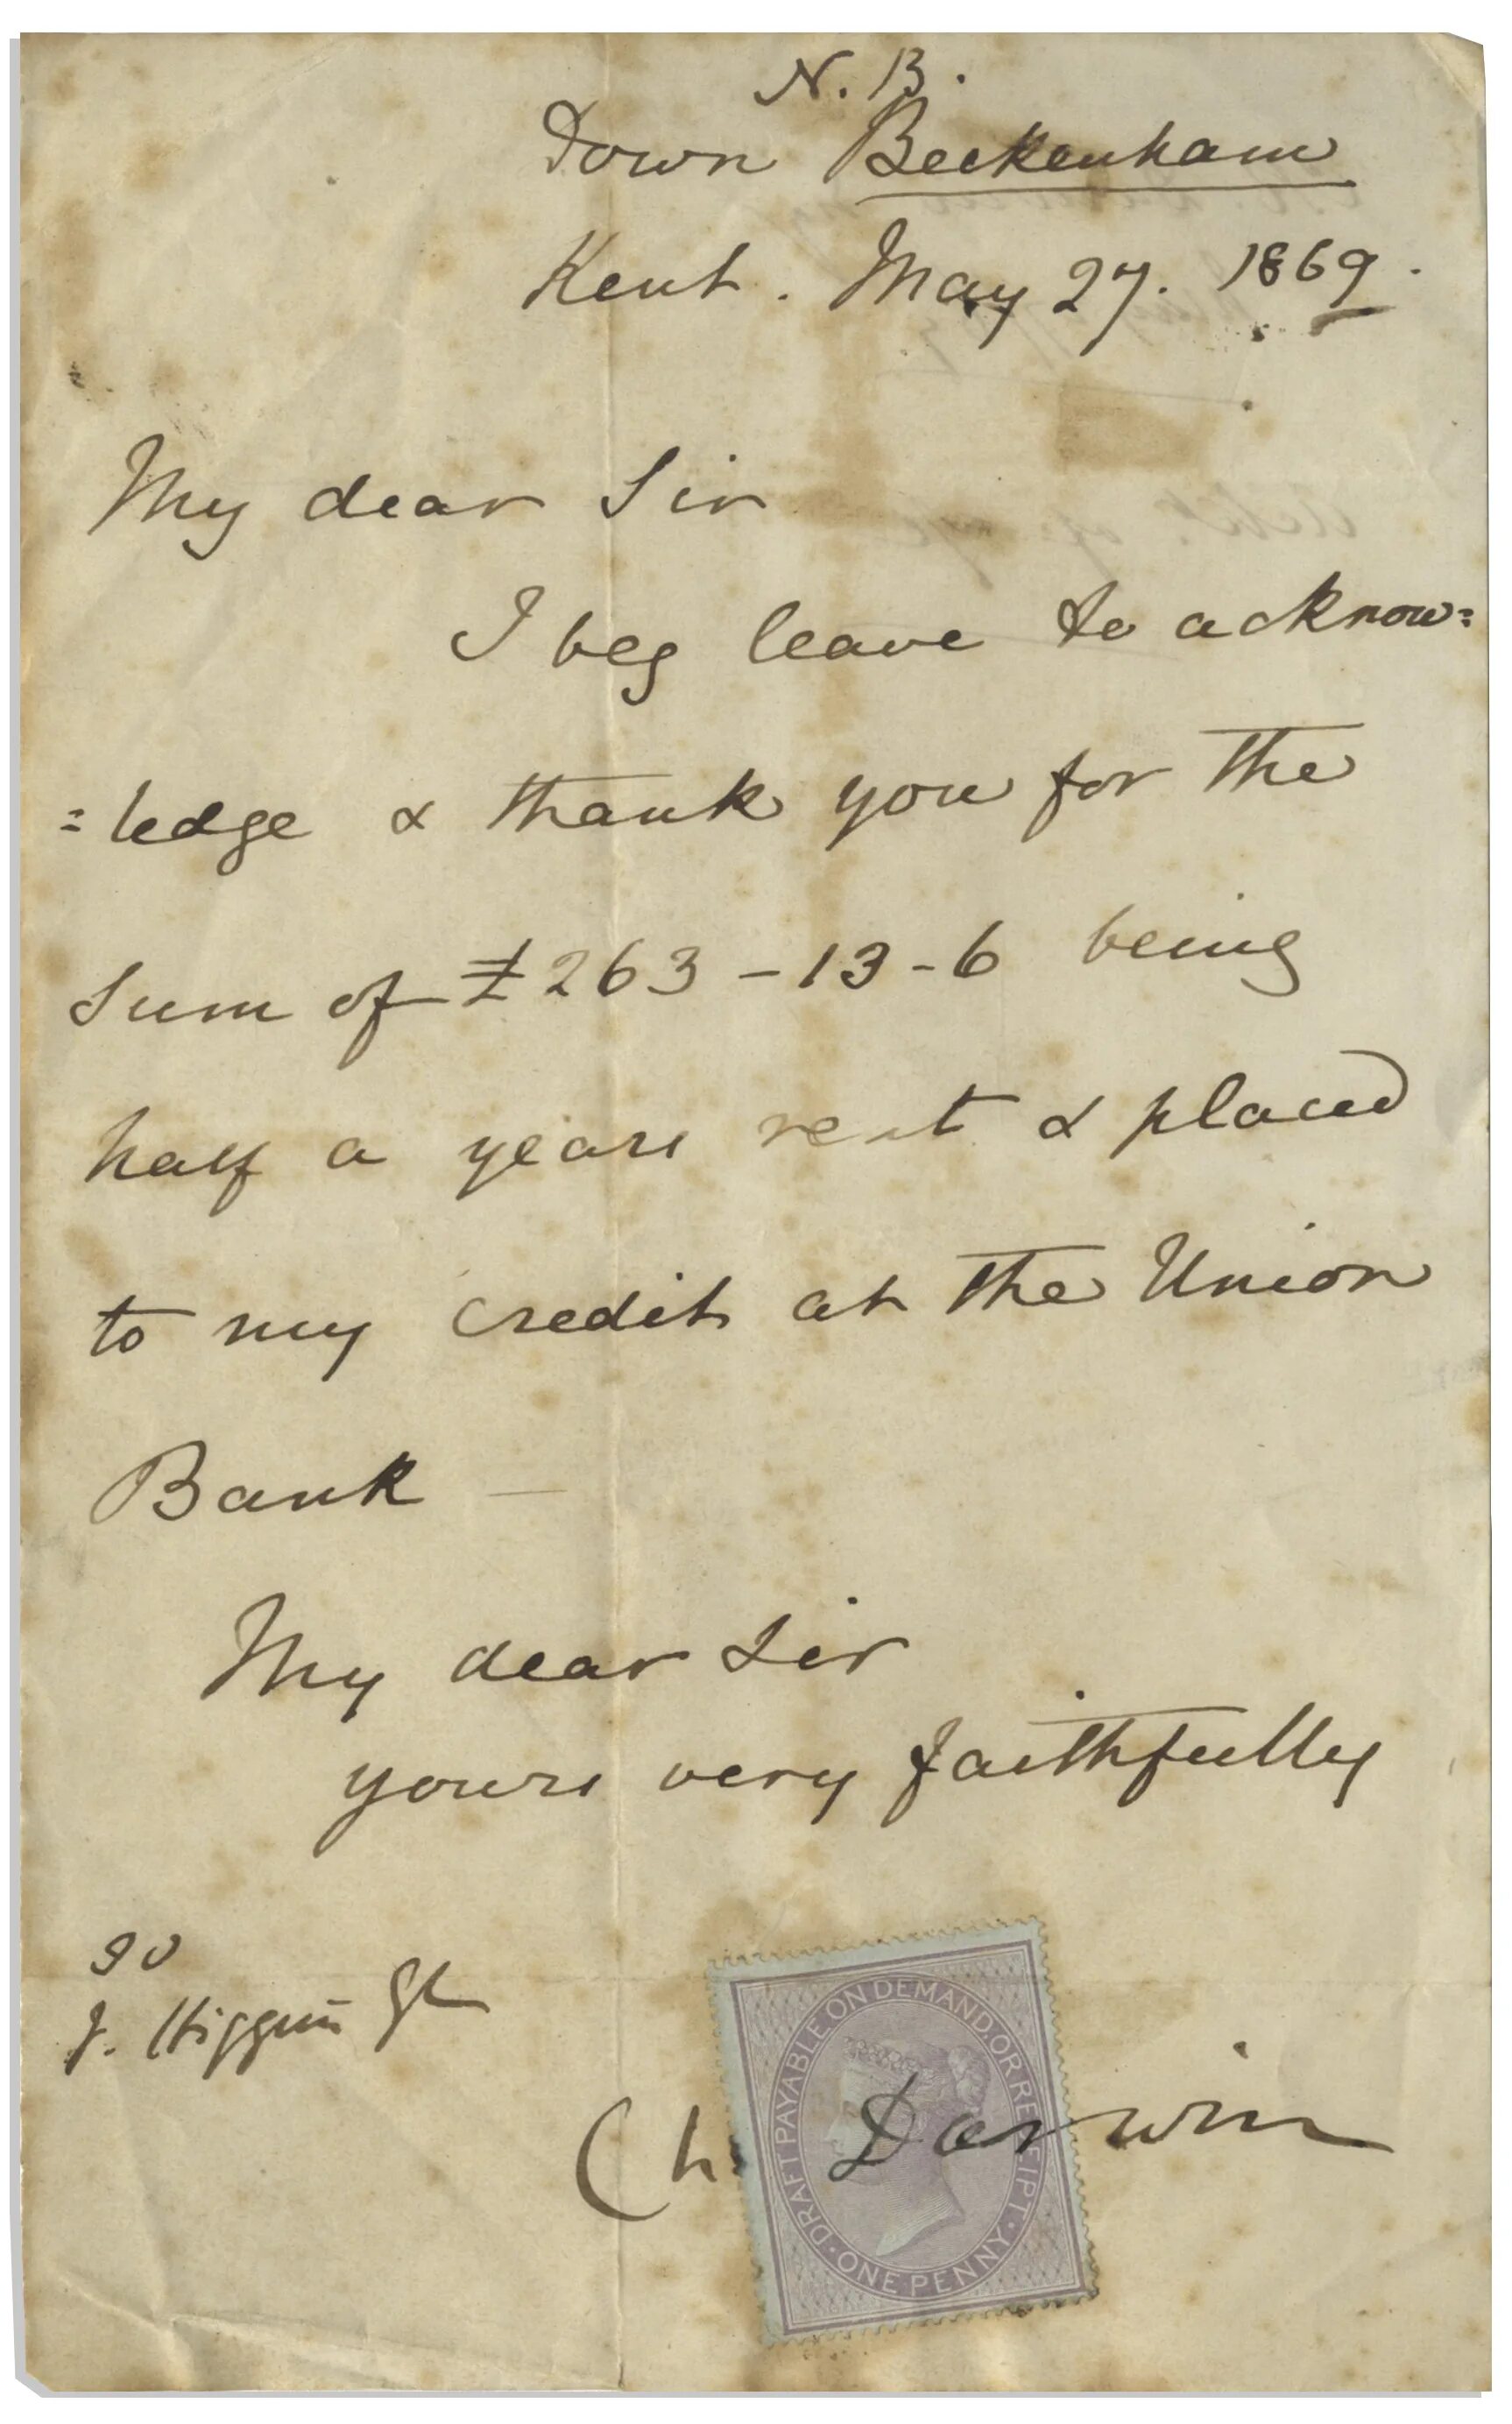 N. B.
Down Beckenham
Kent. May 27. 1869.
My dear Sir
I beg leave to acknow=
=ledge & thank you for the
Sum of £263-13-6 being
half a years rent & placed
to my credit at the Union
Bank —
My dear Sir
yours very faithfully
J. Higgins
Ch. Darwin
DRAFT PAYABLE ON DEMAND. OR RECEIPT.
ONE PENNY